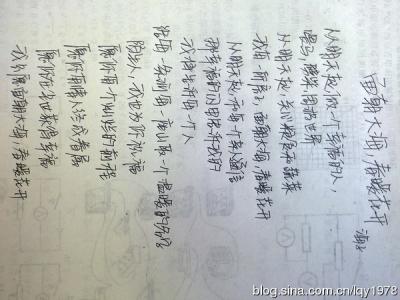 面朝大海,春暖花开
海子
从明天起,做一个幸福的人,
喂马,劈柴,周游世界
从明天起,关心粮食和蔬菜
我有一所房子,面朝大海,春暖花开
从明天起,和每个亲人通信
那幸福的闪电告诉我的
我将告诉每一个人
给每一条河每一座山取一个温暖的名字
陌生人,我也为你祝福
愿你有一个灿烂的前程
愿你有情人终成眷属
愿你在尘世获得幸福
我只愿面朝大海,春暖花开
blog.sina.com.cn/lqy1978